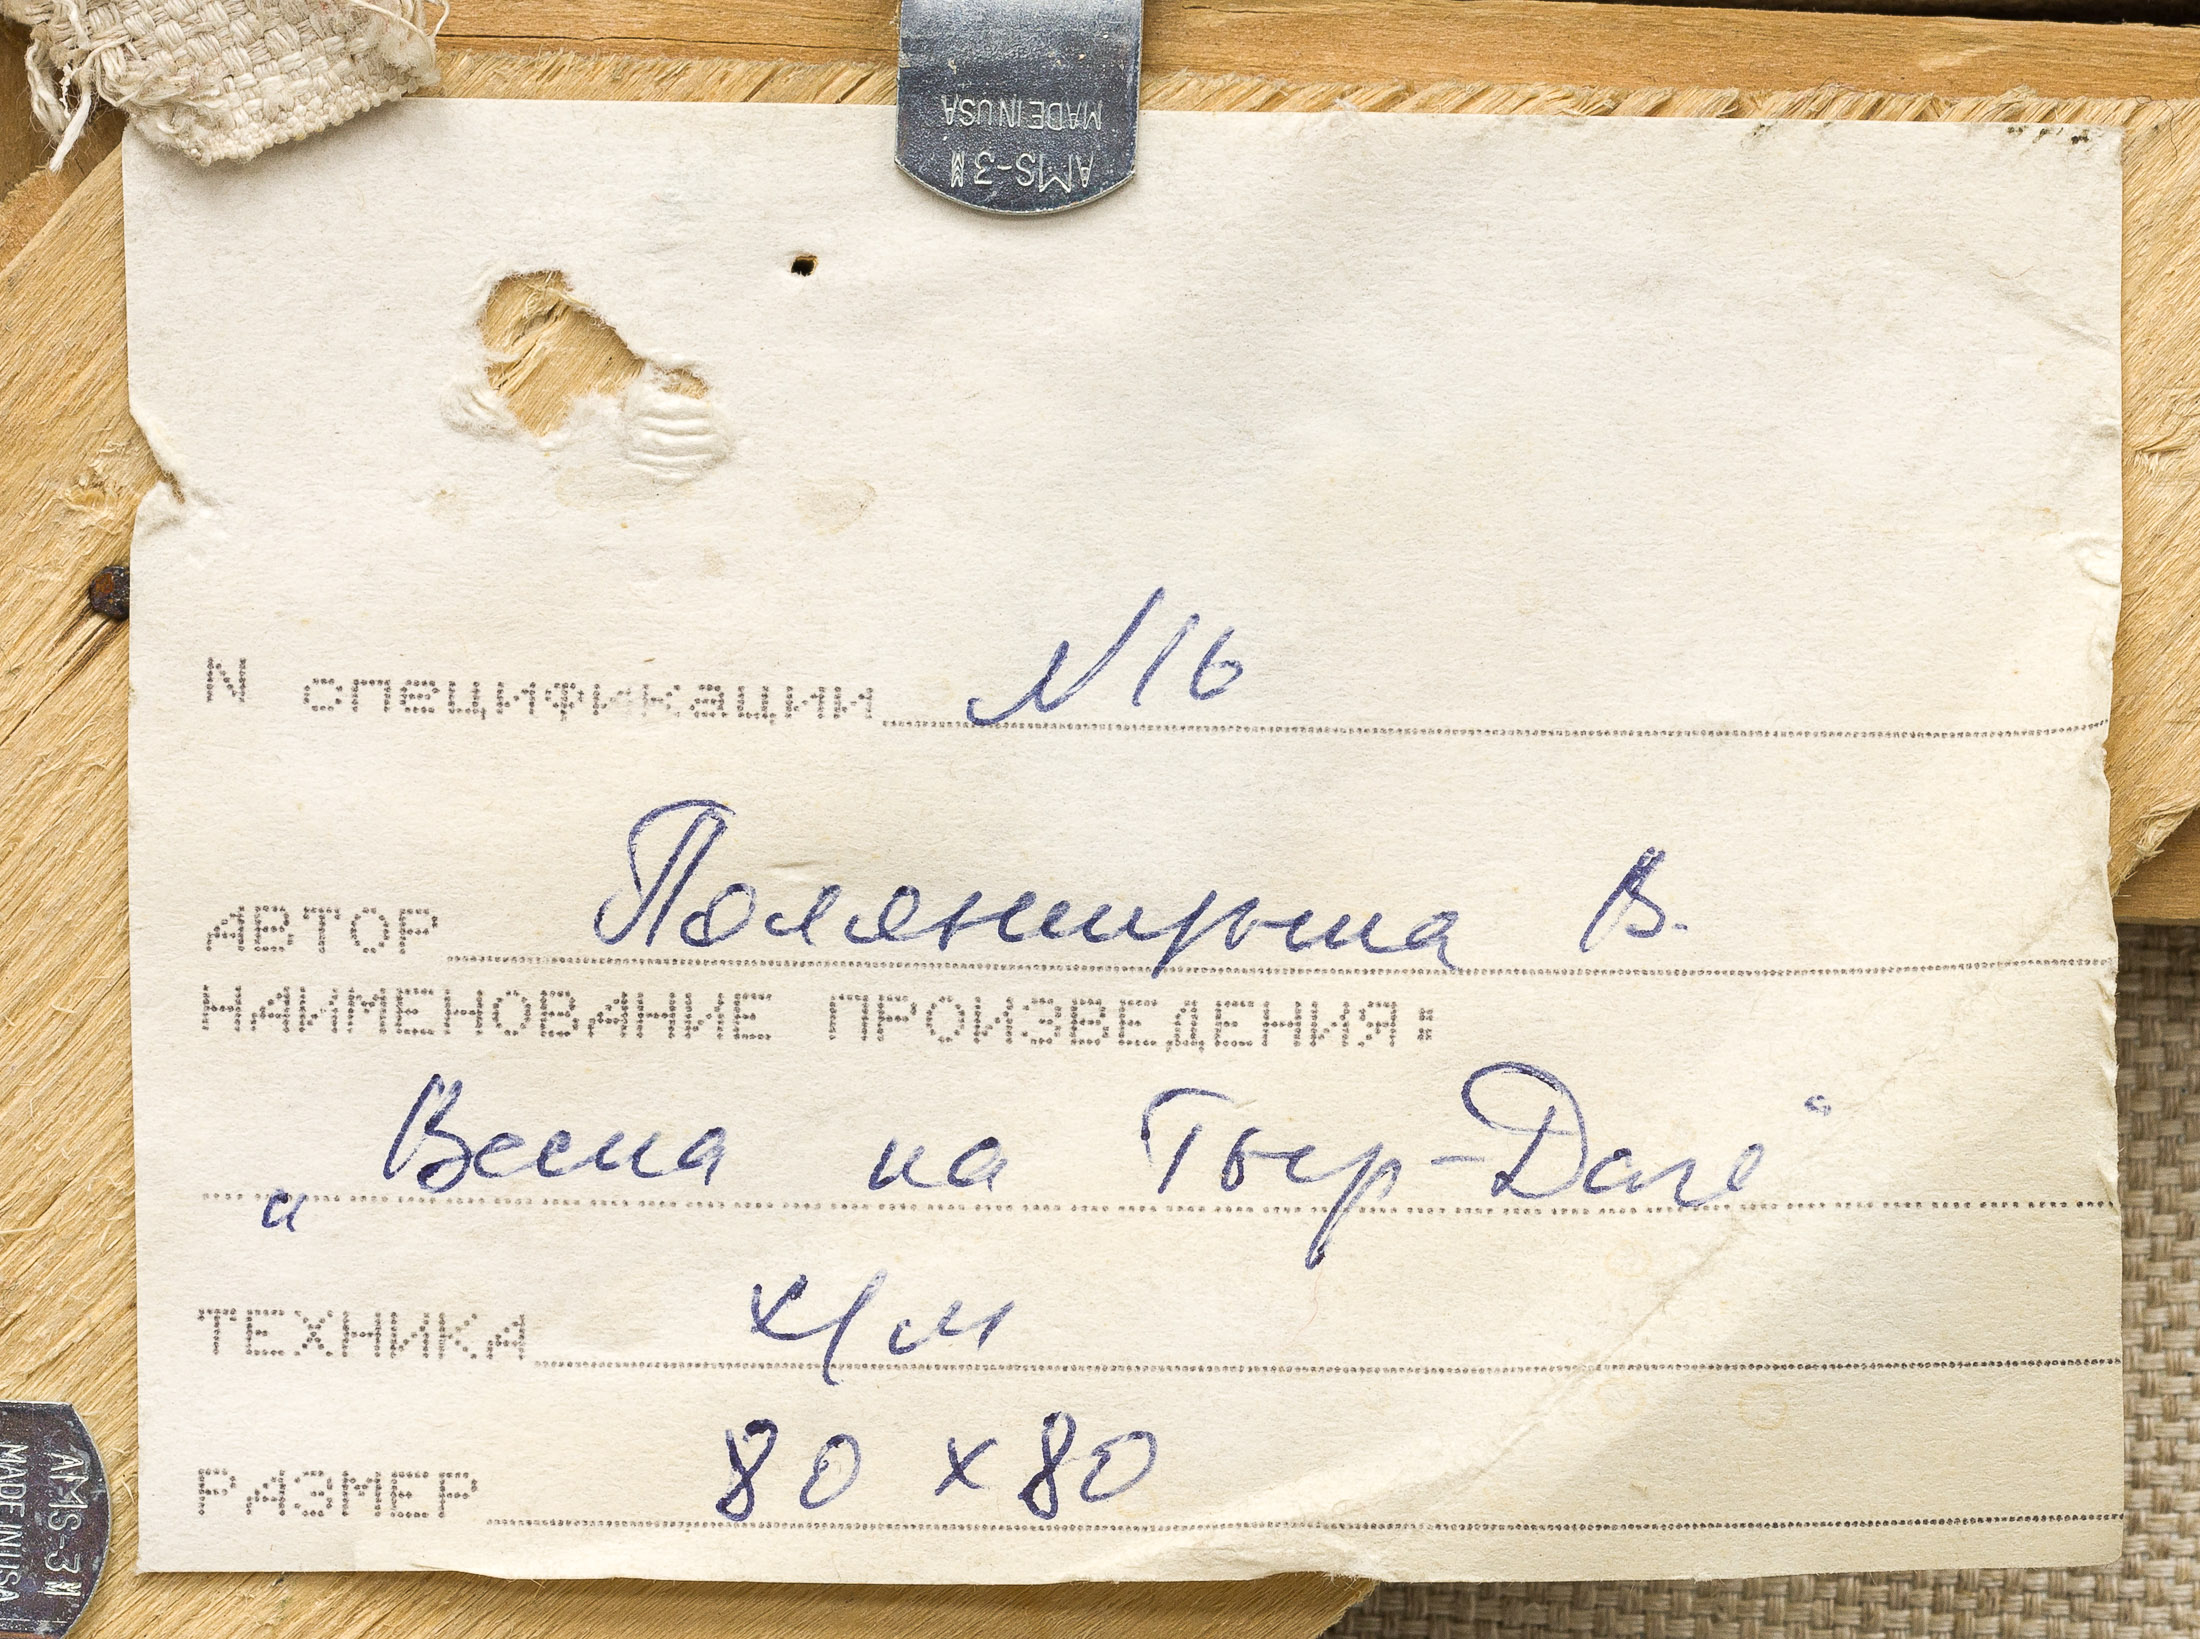 MADE IN USA
AMS-3M
N спецификации N 16
АВТОР Поляницына В.
НАИМЕНОВАНИЕ ПРОИЗВЕДЕНИЯ:
„Весна на
ТЕХНИКА х/м
РАЗМЕР 80 х 80
AMS-3M
MADE IN USA